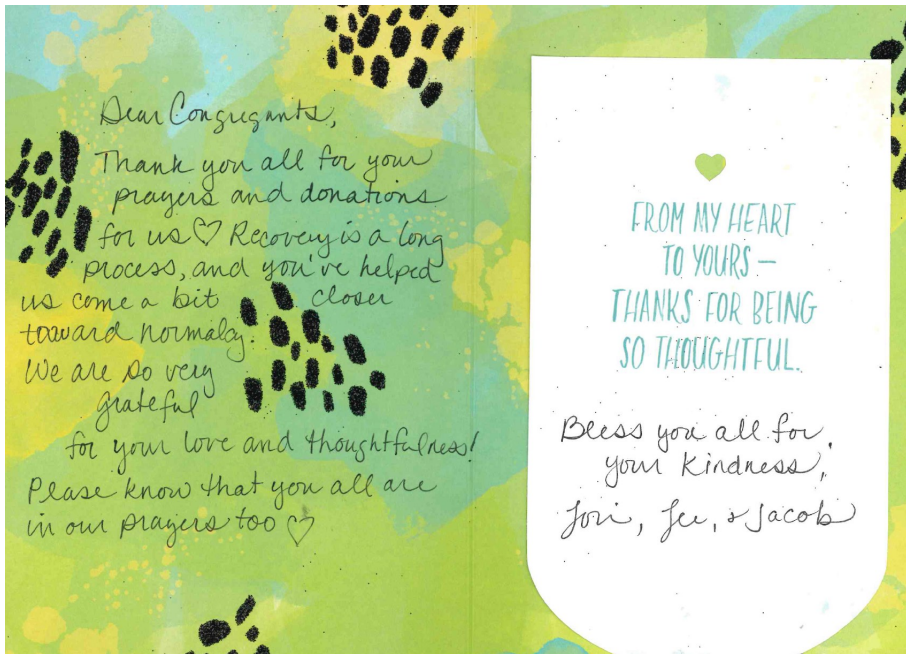 Dear Congregants,
Thank you all for your
prayers and donations
for us♡ Recovery is a long
process, and you've helped
us come a bit closer
toward normalcy.
We are so very
grateful
for your love and thoughtfulness!
Please know that you all are
in our prayers too ♡
FROM MY HEART
TO YOURS —
THANKS FOR BEING
SO THOUGHTFUL.
Bless you all for
your kindness,
Lori, Lee, & Jacob